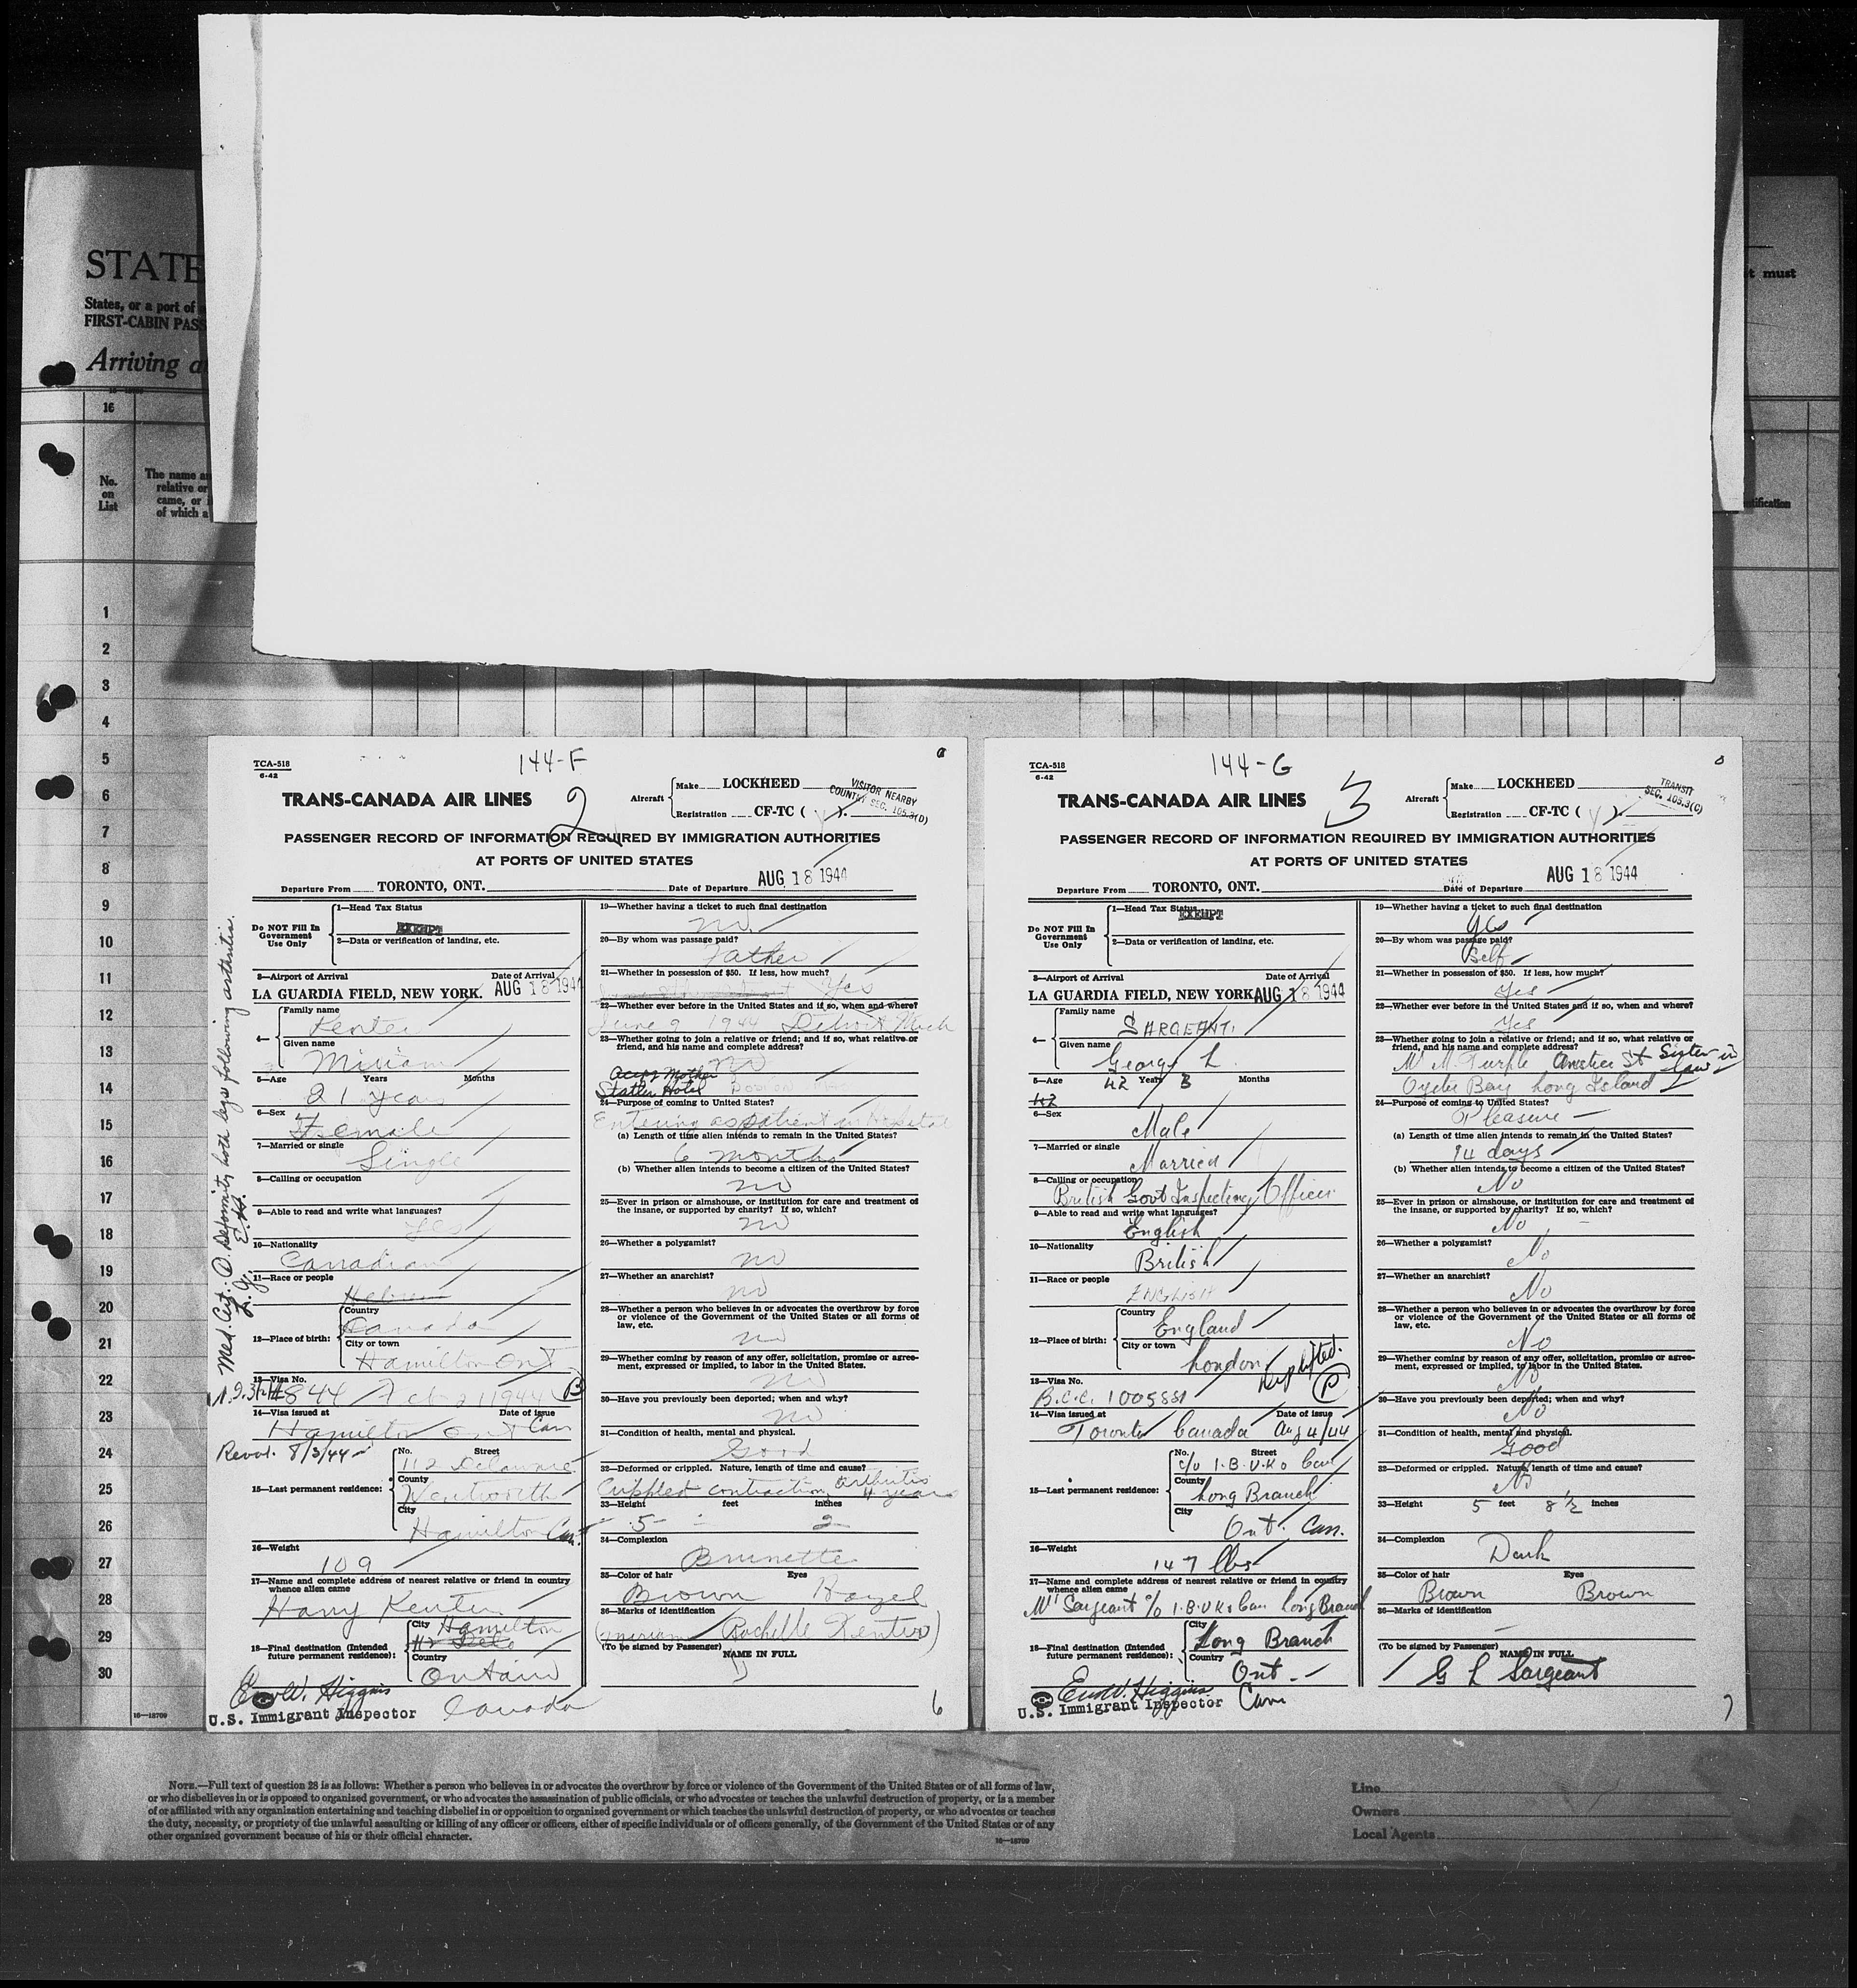 STATE
States, or a port of
FIRST-CABIN PASS
Arriving a
t must
16
No.
on
List
The name a
relative or
came, or
of which a
tification
1
2
3
4
5
6
7
8
9
10
11
12
13
14
15
16
17
18
19
20
21
22
23
24
25
26
27
28
29
30
16—18709
TCA-518
6-42
144-F
TRANS-CANADA AIR LINES
2
Aircraft
Make LOCKHEED
Registration CF-TC ( Y ).
VISITOR NEARBY
COUNTRY SEC. 105.3(D)
PASSENGER RECORD OF INFORMATION REQUIRED BY IMMIGRATION AUTHORITIES
AT PORTS OF UNITED STATES
Departure From TORONTO, ONT. Date of Departure AUG 18 1944
Med. Cert: Deformity both legs following arthritis.
Do NOT Fill In
Government
Use Only
1—Head Tax Status
EXEMPT
2—Data or verification of landing, etc.
3—Airport of Arrival Date of Arrival
LA GUARDIA FIELD, NEW YORK. AUG 18 1944
4—
Family name
Kenter
Given name
Miriam
5—Age Years Months
21 years
6—Sex
Female
7—Married or single
Single
8—Calling or occupation
9—Able to read and write what languages?
Yes
10—Nationality
Canadian
11—Race or people
Hebrew
12—Place of birth:
Country
Canada
City or town
Hamilton Ont
13—Visa No.
14—Visa issued at Date of issue
Hamilton Ont Can
8/3/44
15—Last permanent residence:
No. Street
112 Delaware
County
Wentworth
City
Hamilton Can.
16—Weight
109
17—Name and complete address of nearest relative or friend in country
whence alien came
Harry Kenter
18—Final destination (Intended
future permanent residence):
City Hamilton
Country
Ontario
Canada
U.S. Immigrant Inspector
19—Whether having a ticket to such final destination
no.
20—By whom was passage paid?
Father
21—Whether in possession of $50. If less, how much?
Yes
22—Whether ever before in the United States and if so, when and where?
June 9 1944 Detroit Mich
23—Whether going to join a relative or friend; and if so, what relative or
friend, and his name and complete address?
no
Mother
Statler Hotel
24—Purpose of coming to United States?
Entering as patient in Hospital
(a) Length of time alien intends to remain in the United States?
6 months
(b) Whether alien intends to become a citizen of the United States?
no
25—Ever in prison or almshouse, or institution for care and treatment of
the insane, or supported by charity? If so, which?
no
26—Whether a polygamist?
no
27—Whether an anarchist?
no
28—Whether a person who believes in or advocates the overthrow by force
or violence of the Government of the United States or all forms of
law, etc.
no
29—Whether coming by reason of any offer, solicitation, promise or agree-
ment, expressed or implied, to labor in the United States.
no
30—Have you previously been deported; when and why?
no
31—Condition of health, mental and physical.
Good
32—Deformed or crippled. Nature, length of time and cause?
Crippled contraction, arthritis 4 years
33—Height feet inches
5 2
34—Complexion
Brunette
35—Color of hair Eyes
Brown Hazel
36—Marks of identification
(Miriam Rochelle Kenter)
(To be signed by Passenger) NAME IN FULL
6
TCA-518
6-42
144-G
TRANS-CANADA AIR LINES
3
Aircraft
Make LOCKHEED
Registration CF-TC ( Y ).
TRANSIT
SEC. 105.3(C)
PASSENGER RECORD OF INFORMATION REQUIRED BY IMMIGRATION AUTHORITIES
AT PORTS OF UNITED STATES
Departure From TORONTO, ONT. Date of Departure AUG 18 1944
Do NOT Fill In
Government
Use Only
1—Head Tax Status
EXEMPT
2—Data or verification of landing, etc.
3—Airport of Arrival Date of Arrival
LA GUARDIA FIELD, NEW YORK AUG 18 1944
4—
Family name
SARGEANT.
Given name
George L.
5—Age 42 Years 3 Months
42
6—Sex
Male
7—Married or single
Married
8—Calling or occupation
British Govt Inspecting Officer
9—Able to read and write what languages?
English
10—Nationality
British
11—Race or people
ENGLISH
12—Place of birth:
Country
England
City or town
London
13—Visa No.
B.C.C. 1005881
14—Visa issued at Date of issue
Toronto Canada Aug 4/44
15—Last permanent residence:
No. Street
c/o I.B.U.K. Can
County
Long Branch
City
Ont. Can.
16—Weight
147 lbs
17—Name and complete address of nearest relative or friend in country
whence alien came
Sargeant c/o I.B.U.K. Can Long Branch
18—Final destination (Intended
future permanent residence):
City
Long Branch
Country
Ont.
Can
U.S. Immigrant Inspector
19—Whether having a ticket to such final destination
yes
20—By whom was passage paid?
Self
21—Whether in possession of $50. If less, how much?
Yes
22—Whether ever before in the United States and if so, when and where?
Yes
23—Whether going to join a relative or friend; and if so, what relative or
friend, and his name and complete address?
M. Purple Anstice St Sister in law
Oyster Bay Long Island
24—Purpose of coming to United States?
Pleasure
(a) Length of time alien intends to remain in the United States?
14 days
(b) Whether alien intends to become a citizen of the United States?
No
25—Ever in prison or almshouse, or institution for care and treatment of
the insane, or supported by charity? If so, which?
No
26—Whether a polygamist?
No
27—Whether an anarchist?
No
28—Whether a person who believes in or advocates the overthrow by force
or violence of the Government of the United States or all forms of
law, etc.
No
29—Whether coming by reason of any offer, solicitation, promise or agree-
ment, expressed or implied, to labor in the United States.
No
30—Have you previously been deported; when and why?
No
31—Condition of health, mental and physical.
Good
32—Deformed or crippled. Nature, length of time and cause?
No
33—Height 5 feet 8 1/2 inches
34—Complexion
Dark
35—Color of hair Eyes
Brown Brown
36—Marks of identification
(To be signed by Passenger) NAME IN FULL
G L Sargeant
7
NOTE.—Full text of question 28 is as follows: Whether a person who believes in or advocates the overthrow by force or violence of the Government of the United States or of all forms of law,
or who disbelieves in or is opposed to organized government, or who advocates the assassination of public officials, or who advocates or teaches the unlawful destruction of property, or is a member
of or affiliated with any organization entertaining and teaching disbelief in or opposition to organized government or which teaches the unlawful destruction of property, or who advocates or teaches
the duty, necessity, or propriety of the unlawful assaulting or killing of any officer or officers, either of specific individuals or of officers generally, of the Government of the United States or of any
other organized government because of his or their official character.
16—18709
Line
Owners
Local Agents